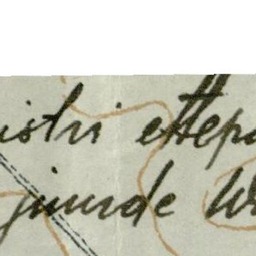 istri ettepa
juurde W